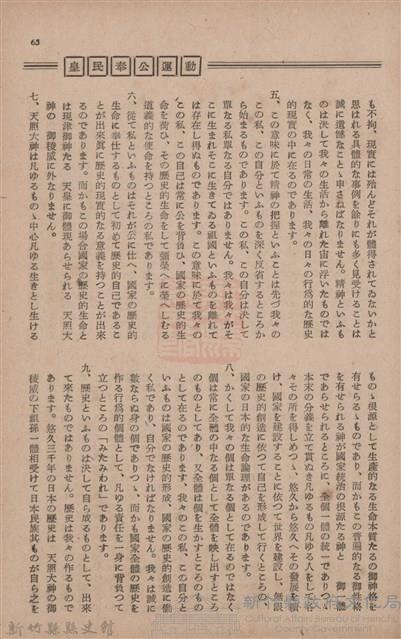 63
皇民奉公運動
も不拘、現實には殆んどそれが體得されてゐないかと
思はれる具體的な事例を餘りにも多く見受けることは
誠に遺憾なことゝ申さねばなりません。精神といふも
のは決して我々の生活から離れた宙に浮いたものでは
なく、我々の日常の生活、我々の日々の行爲的な歷史
的現實の中に在るのであります。
五、この意味に於て精神の把握といふことは先づ我々の
この私、この自分といふものを深く反省するところか
ら始まるものであります。この私、この自分は決して
單なる私單なる自分ではありません。我々は我々がそ
こに生まれそこに生きてゐる祖國といふものを離れて
は存在し得ぬものであります。この意味に於て我々の
この私、この自己は常に公を背負ひ、國家の歷史的生
命を荷ひ、その歷史的生命をして彌榮へに榮へしむる
道義的な使命を持つところの私であります。
六、從て私といふものはそれが公に仕へ、國家の歷史的
生命に奉仕するものとして初めて歷史的自己であるこ
とが出來眞に歷史的現實的なる意義を持つことが出來
るのであります。而かもこの場合國家の歷史的生命と
は現津御神たる 天皇に御體現あらせられる 天照大
神の 御稜威に外なりません。
七、天照大神は凡ゆるものゝ中心凡ゆる生きとし生ける
ものゝ根源として生產的なる生命本質たるの御神格を
有せらるゝものであり、而かもこの普遍的なる御性格
を有せられる神が國家統治の根源たる神と 御一體
であらせられるところに、全個一體の統一であり、
本末の分義を立て貫ぬき凡ゆるものを凡ゆる人をして
々その所を得しめつゝ、悠久から悠久へその發展を續
け、國家を建設することに依つて世界を建設し、無限
の歷史的創造に依つて自己を形成して行くところの
國家の日本的な生命論理があるのであります。
八、かくして我々の個は單なる個として在るのではなく
個は常に全體の中なる個として全體を映し出すところ
のものとしてあり、又全體は個を生かすところのもの
として在るのであります、我々のこの私、この自分と
いふものは國家の歷史的形成、國家の歷史的創造に働
く私であり、自分でなければなりません。我々は誠に
數ならぬ身の個でありつゝ、而かも國家全體の歷史を
作る行爲的個體として、凡ゆる責任を一身に背負つて
立つところの「みたみわれ」であります。
九、歷史といふものは決して自ら成るものとして、出來
て來たものではありません。歷史は我々の作るもので
あります。悠久三千年の日本の歷史は 天照大神の御
稜威の下組孫一體相受けて日本民族其ものが自ら之を
新竹縣縣史館
Cultural Affairs Bureau of Hsinchu